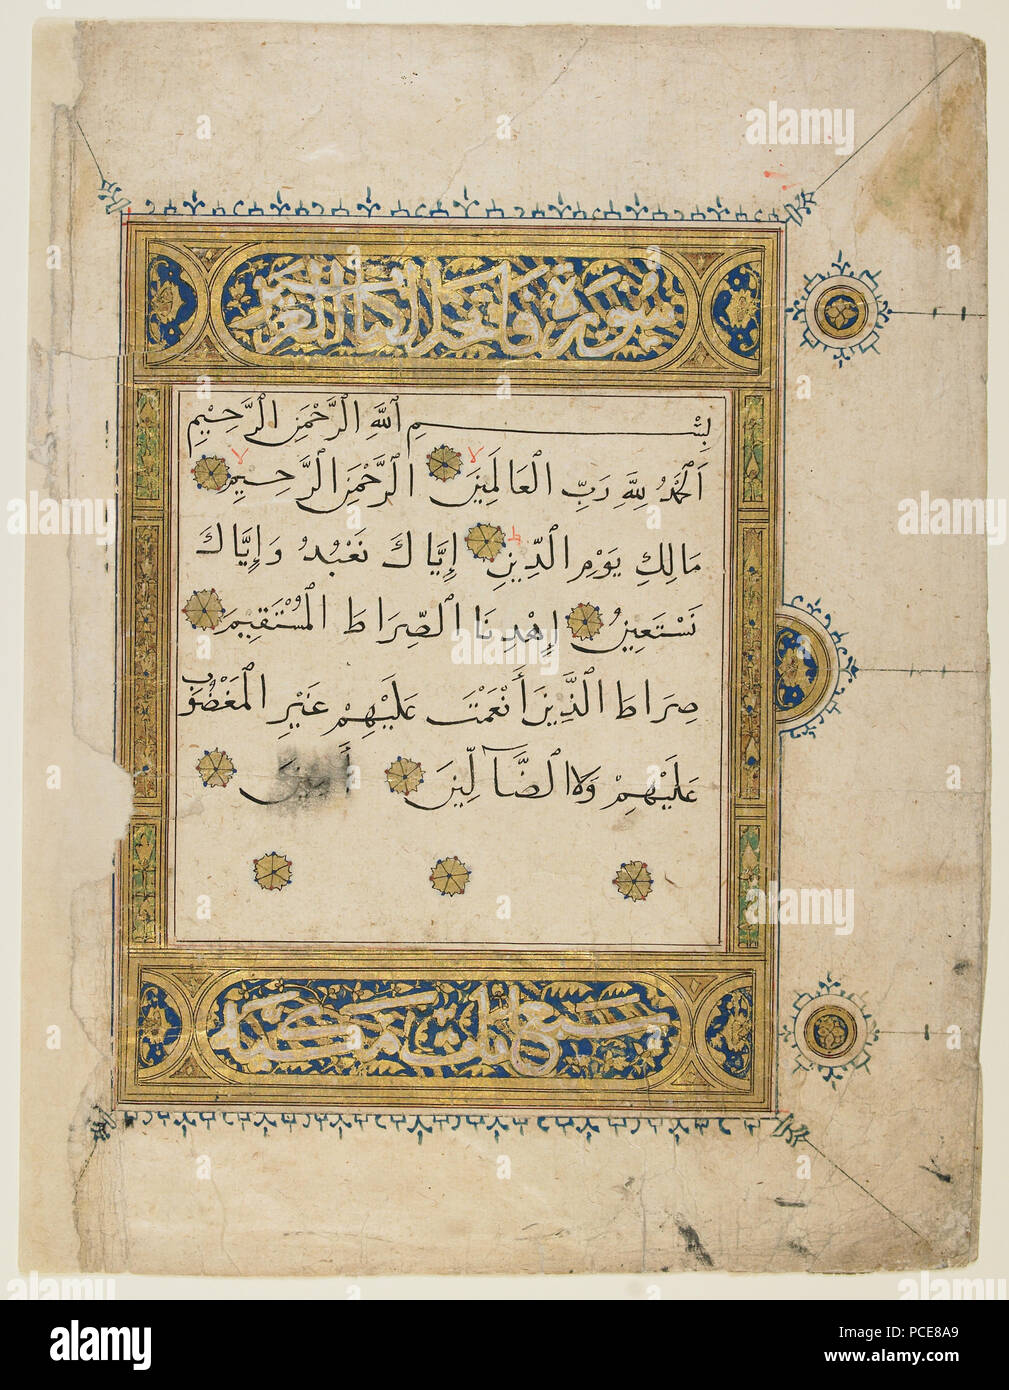 سورة فاتحة الكتاب العزيز
بِسْمِ اللَّهِ الرَّحْمَنِ الرَّحِيمِ
اَلْحَمْدُ لِلَّهِ رَبِّ الْعَالَمِينَ لا الرَّحْمَنِ الرَّحِيمِ لا
مَالِكِ يَوْمِ الدِّينِ ط إِيَّاكَ نَعْبُدُ وَإِيَّاكَ
نَسْتَعِينُ إِهْدِنَا الصِّرَاطَ الْمُسْتَقِيمَ
صِرَاطَ الَّذِينَ أَنْعَمْتَ عَلَيْهِمْ غَيْرِ الْمَغْضُوبِ
عَلَيْهِمْ وَلَا الضَّآلِّينَ أمِينَ
سبع ايات مكية
alamy
a
alamy
Image ID: PCE8A9
www.alamy.com